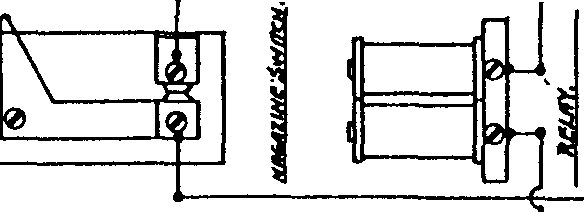 MAGAZINE SWITCH.
RELAY.